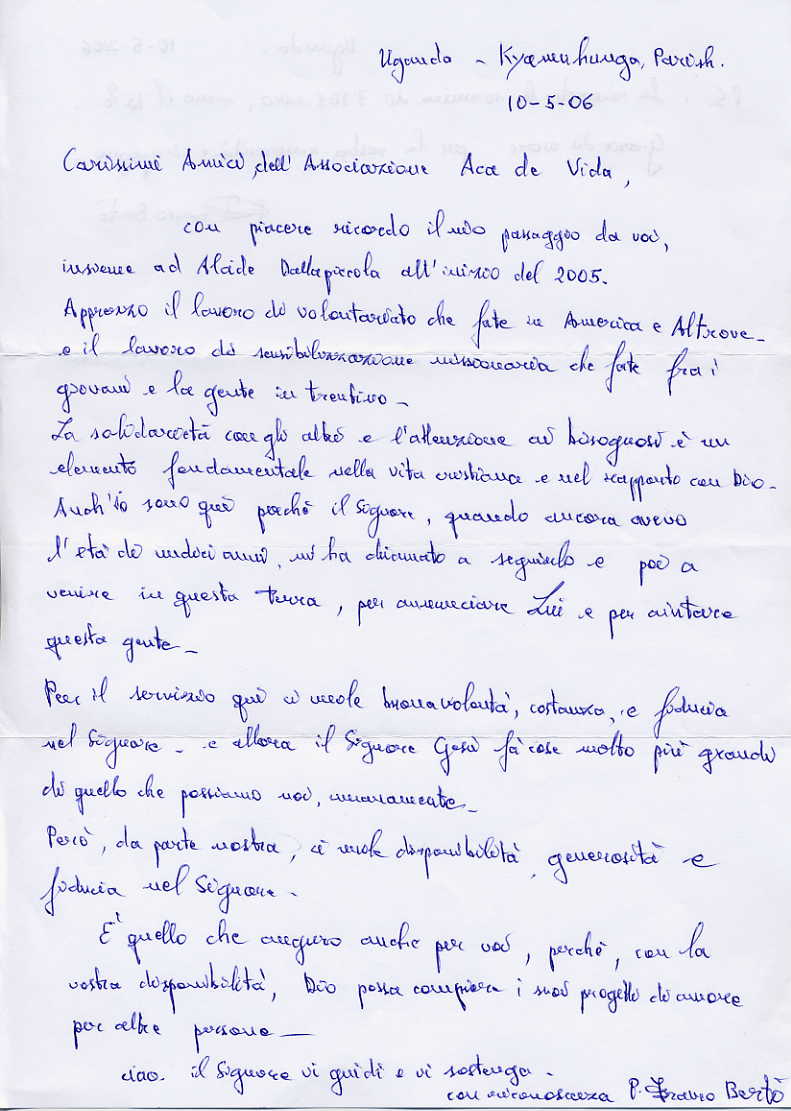 Uganda - Kyamuhunga, Parish.
10-5-06
Carissimi Amici, dell'Associazione Aca de Vida,
con piacere ricordo il mio passaggio da voi,
insieme ad Alcide Dallapiccola all'inizio del 2005.
Apprezzo il lavoro di volontariato che fate in America e Altrove -
e il lavoro di sensibilizzazione missionaria che fate fra i
giovani e la gente in trentino -
La solidarietà con gli altri e l'attenzione ai bisognosi è un
elemento fondamentale nella vita cristiana e nel rapporto con Dio -
Anch'io sono qui perchè il Signore, quando ancora avevo
l'età di undici anni, mi ha chiamato a seguirlo e poi a
venire in questa terra, per annunciare Lui e per aiutare
questa gente -
Per il servizio qui ci vuole buona volontà, costanza, e fiducia
nel Signore - e allora il Signore Gesù fà cose molto più grandi
di quello che possiamo noi, umanamente -
Però, da parte nostra, ci vuole disponibilità, generosità e
fiducia nel Signore -
E' quello che auguro anche per voi, perchè, con la
vostra disponibilità, Dio possa compiere i suoi progetti di amore
per altre persone -
ciao. il Signore vi guidi e vi sostenga -
con riconoscenza P. Bertò